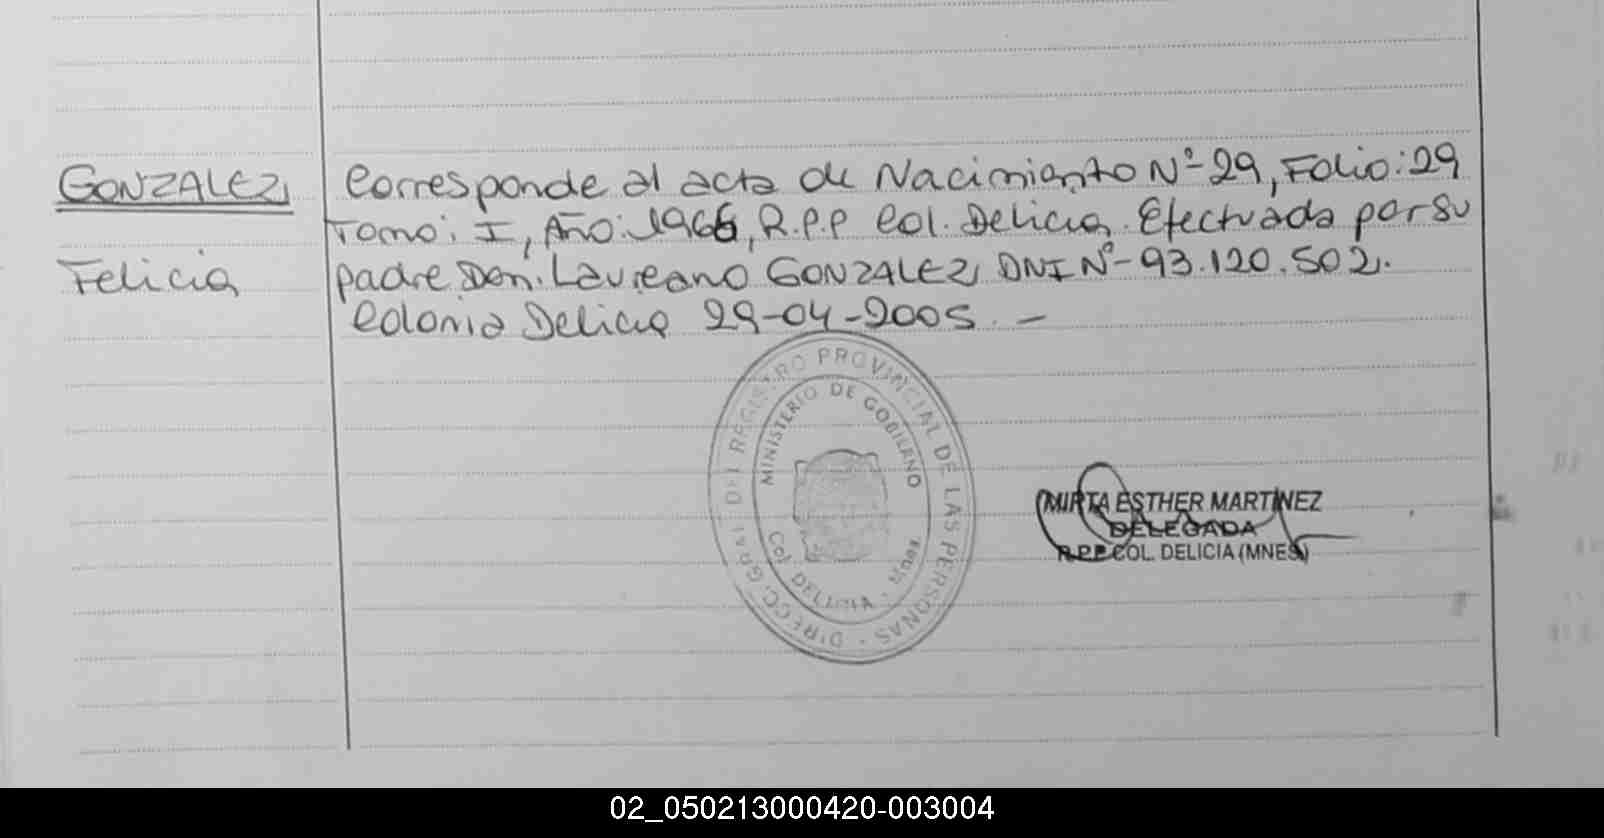 GONZALEZ,
Felicia
Corresponde al acta de Nacimiento Nº-29, Folio: 29
Tomo: I, Año: 1966, R.P.P Col. Delicia. Efectuada por su
padre Don. Laureano GONZALEZ, DNI Nº-93.120.502.
Colonia Delicia 29-04-2005. -
DIRECC. GRAL. DEL REGISTRO PROVINCIAL DE LAS PERSONAS
MINISTERIO DE GOBIERNO
Col. DELICIA
MIRTA ESTHER MARTINEZ
DELEGADA
R.P.P COL. DELICIA (MNES)
02_050213000420-003004